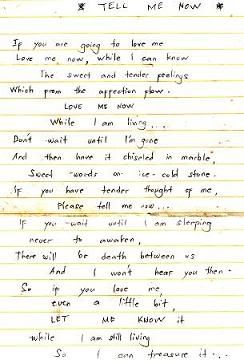 * TELL ME NOW *
If you are going to love me
Love me now, while I can know
The sweet and tender feelings
Which from the affection flow.
LOVE ME NOW
While I am living...
Don't wait until I'm gone
And then have it chiseled in marble,
Sweet words on ice-cold stone.
If you have tender thought of me,
Please tell me now...
If you wait until I am sleeping
never to awaken,
There will be death between us
And I won't hear you then.
So if you love me,
even a little bit,
LET ME KNOW it
while I am still living
So I can treasure it...